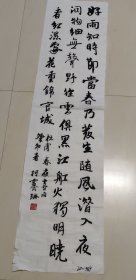 好雨知時節當春乃發生随風潛入夜
潤物細無聲野径雲俱黑江船火獨明曉
看紅濕處花重錦官城
杜甫春夜喜雨